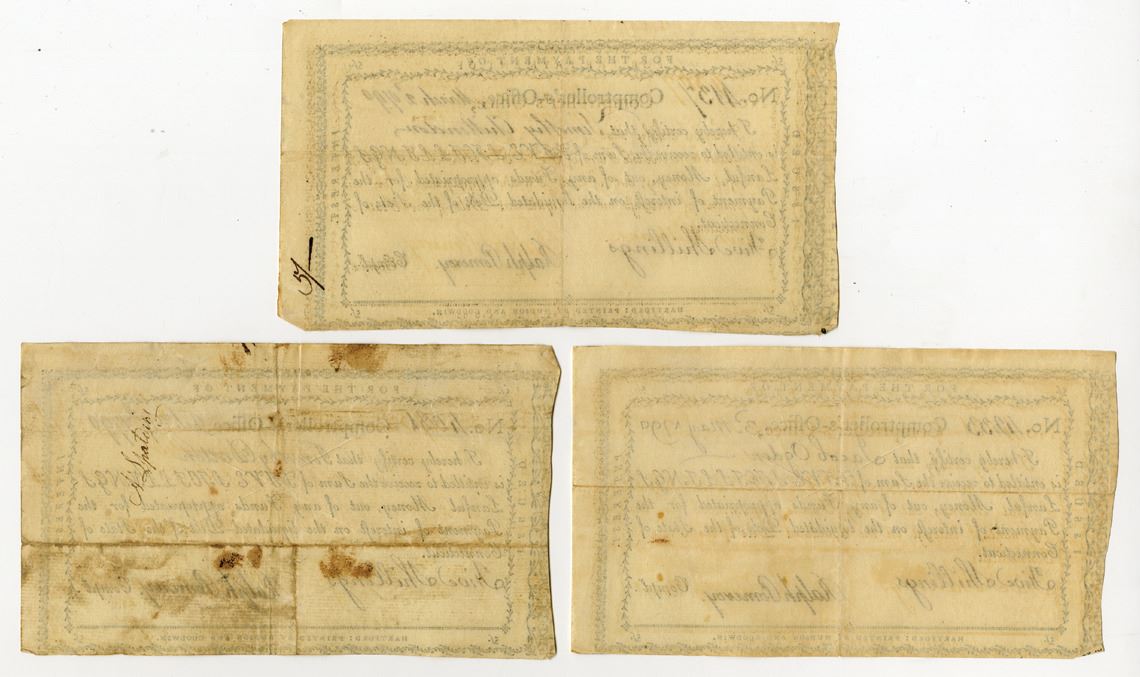 FOR THE PAYMENT OF
5/.
No. 1137 Comptroller's-Office, March 2 1790
I hereby certify that Timothy Chittenden
is entitled to receive the Sum of FIVE SHILLINGS
Lawful Money, out of any Funds appropriated for the
Payment of Interest on the liquidated Debt of the State of
Connecticut.
Five Shillings
Ralph Pomeroy Compt.
HARTFORD: PRINTED BY HUDSON AND GOODWIN.
5/-
FOR THE PAYMENT OF
No. Comptroller's-Office, 1790
I hereby certify that
is entitled to receive the Sum of FIVE SHILLINGS
Lawful Money out of any Funds appropriated for the
Payment of Interest on the liquidated Debt of the State of
Connecticut.
Five Shillings
Ralph Pomeroy Compt.
HARTFORD: PRINTED BY HUDSON AND GOODWIN.
FOR THE PAYMENT OF
No. Comptroller's-Office, May 1790
I hereby certify that Jacob Ogden
is entitled to receive the Sum of FIVE SHILLINGS
Lawful Money, out of any Funds appropriated for the
Payment of Interest on the liquidated Debt of the State of
Connecticut.
Five Shillings
Ralph Pomeroy Compt.
HARTFORD: PRINTED BY HUDSON AND GOODWIN.